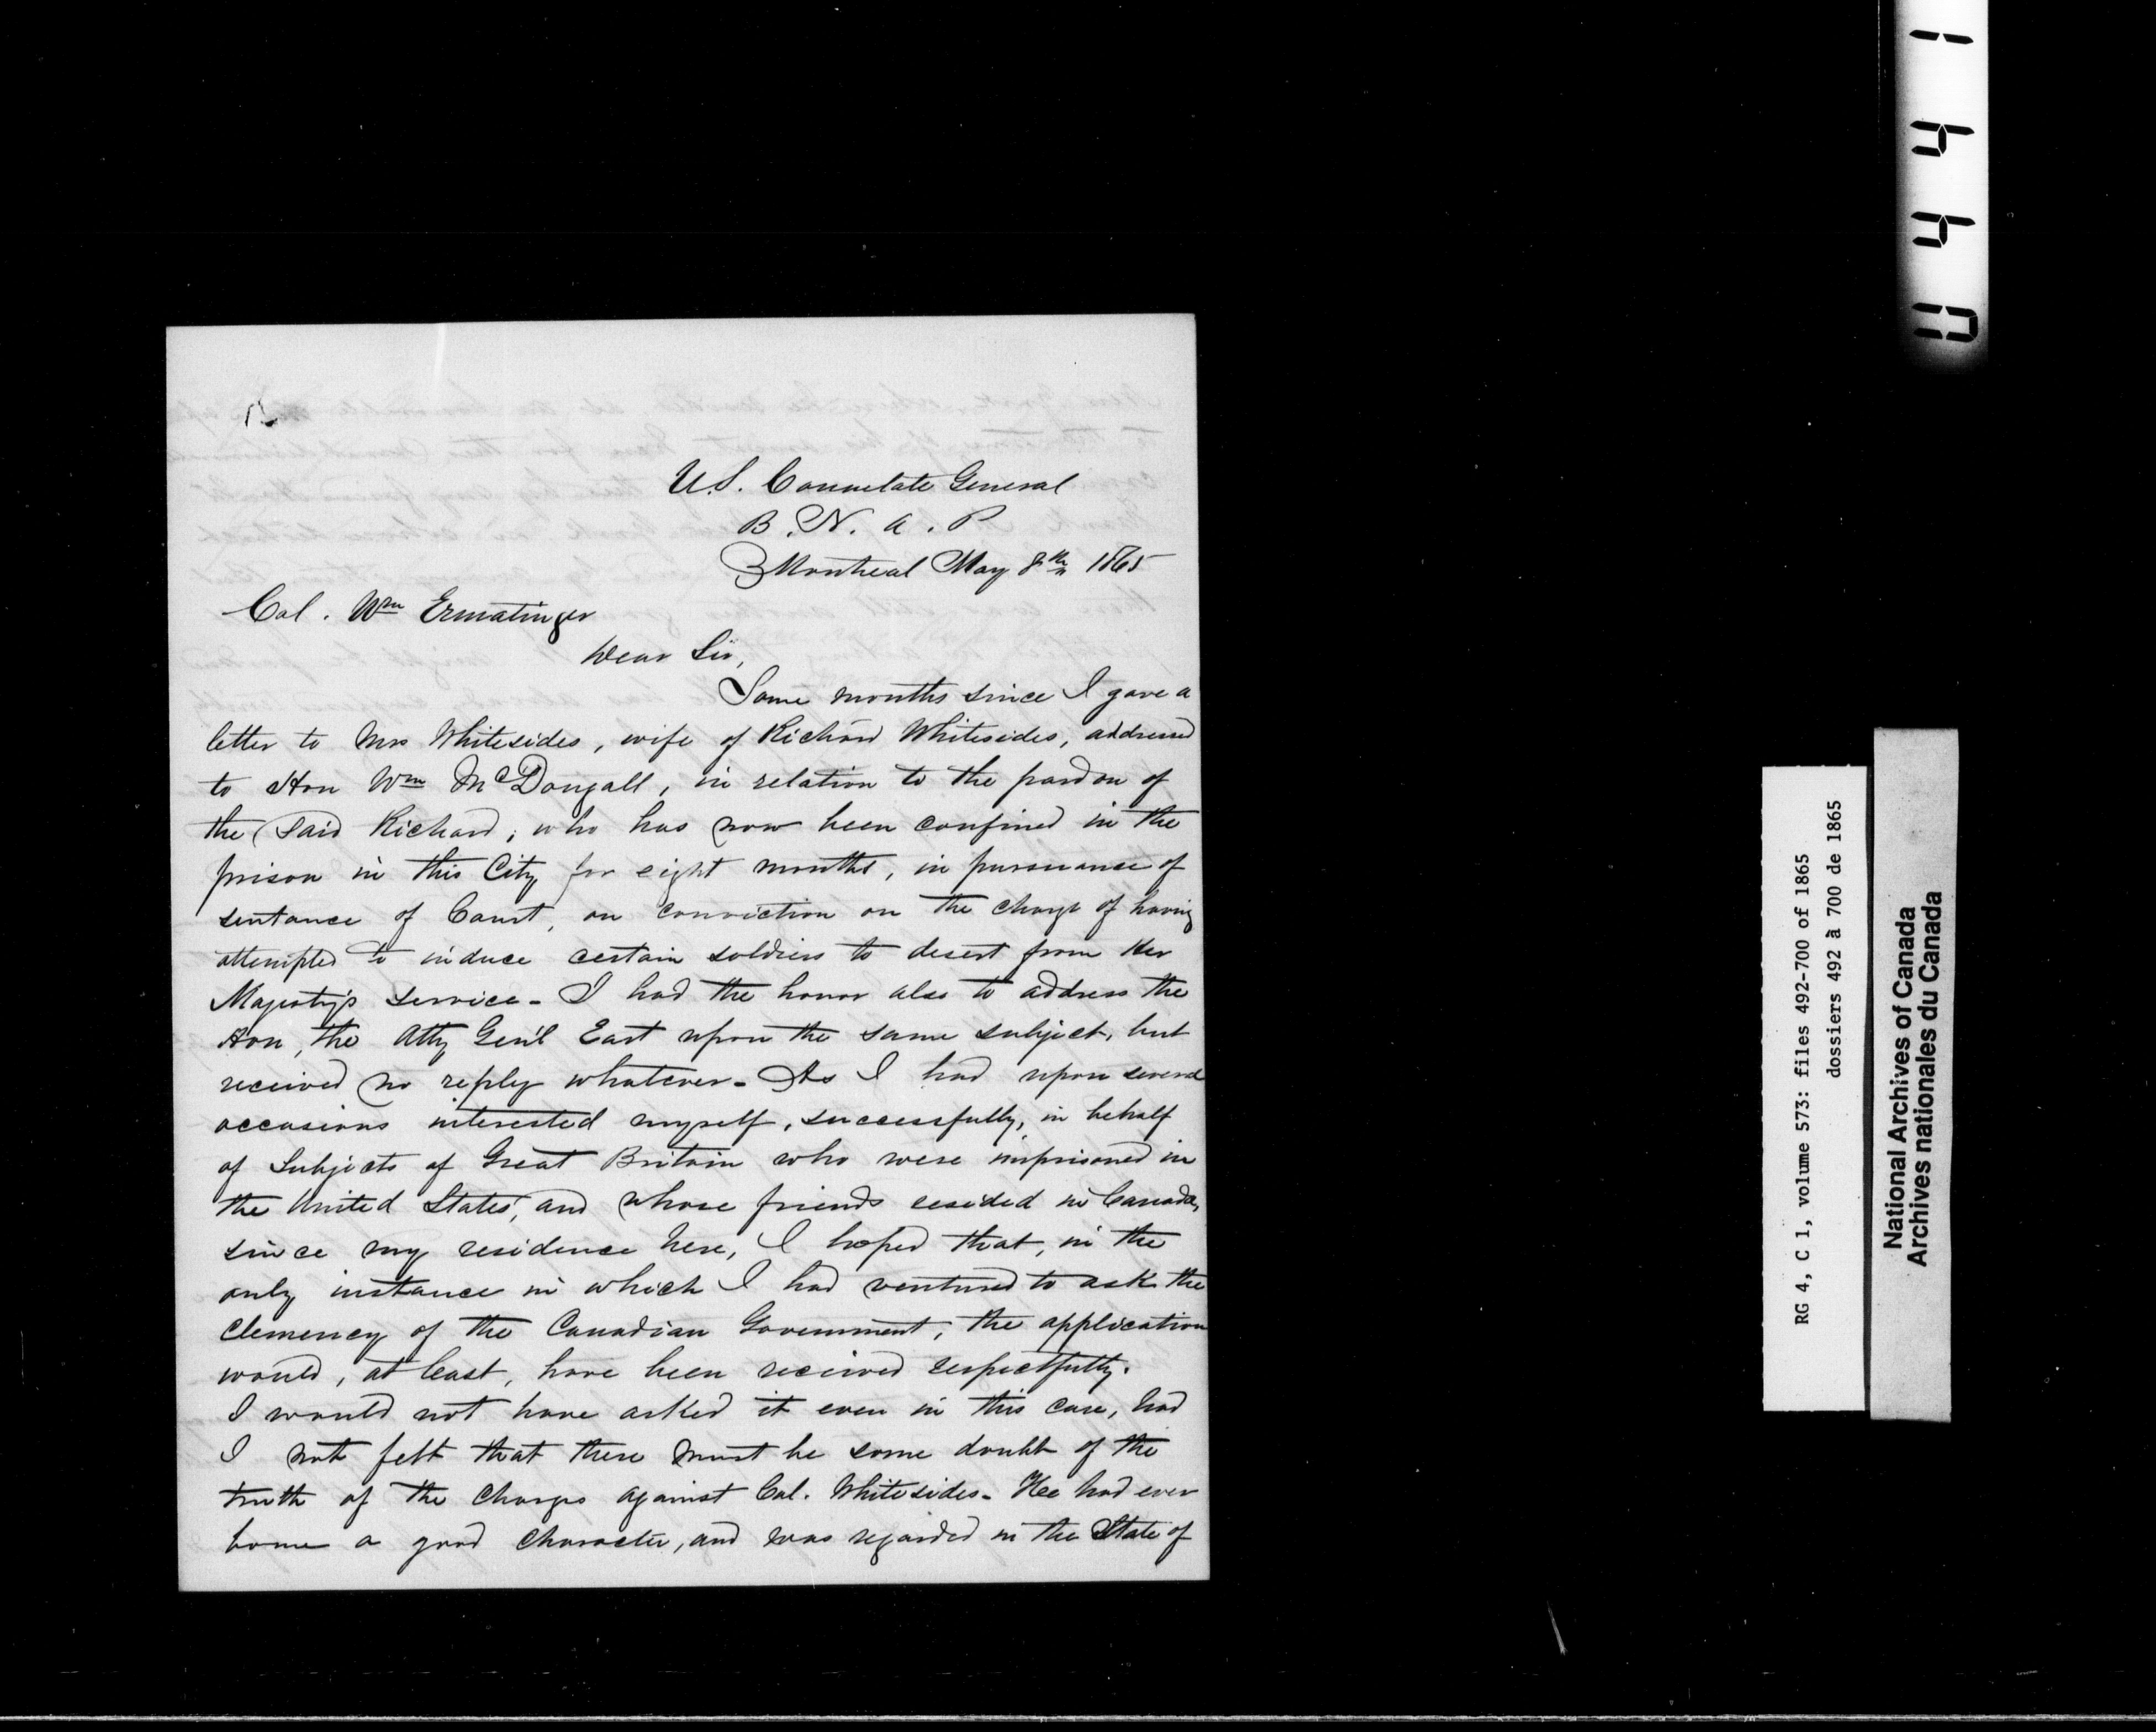 U.S. Consulate General
B. N. A. P
Montreal May 8th 1865
Col. Wm Ermatinger
Dear Sir,
Some months since I gave a
letter to Mrs Whitesides, wife of Richard Whitesides, addressed
to Hon Wm McDougall, in relation to the pardon of
the said Richard, who has now been confined in the
prison in this City for eight months, in pursuance of
sentance of Court, on conviction on the charge of having
attempted to induce certain soldiers to desert from Her
Majesty's service - I had the honor also to address the
Hon, the Atty Gen'l East upon the same subject, but
received no reply whatever - As I had upon several
occasions interested myself, successfully, in behalf
of Subjects of Great Britain who were imprisoned in
the United States, and whose friends resided in Canada,
since my residence here, I hoped that, in the
only instance in which I had ventured to ask the
Clemency of the Canadian Government, the application
would, at least, have been received respectfully.
I would not have asked it even in this case, had
I not felt that there must be some doubt of the
truth of the charges against Col. Whitesides - He had ever
borne a good character, and was regarded in the State of
0441
RG 4, C 1, volume 573: files 492-700 of 1865
dossiers 492 à 700 de 1865
National Archives of Canada
Archives nationales du Canada